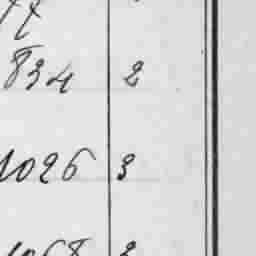 77
834 2
1026 3
1068 3